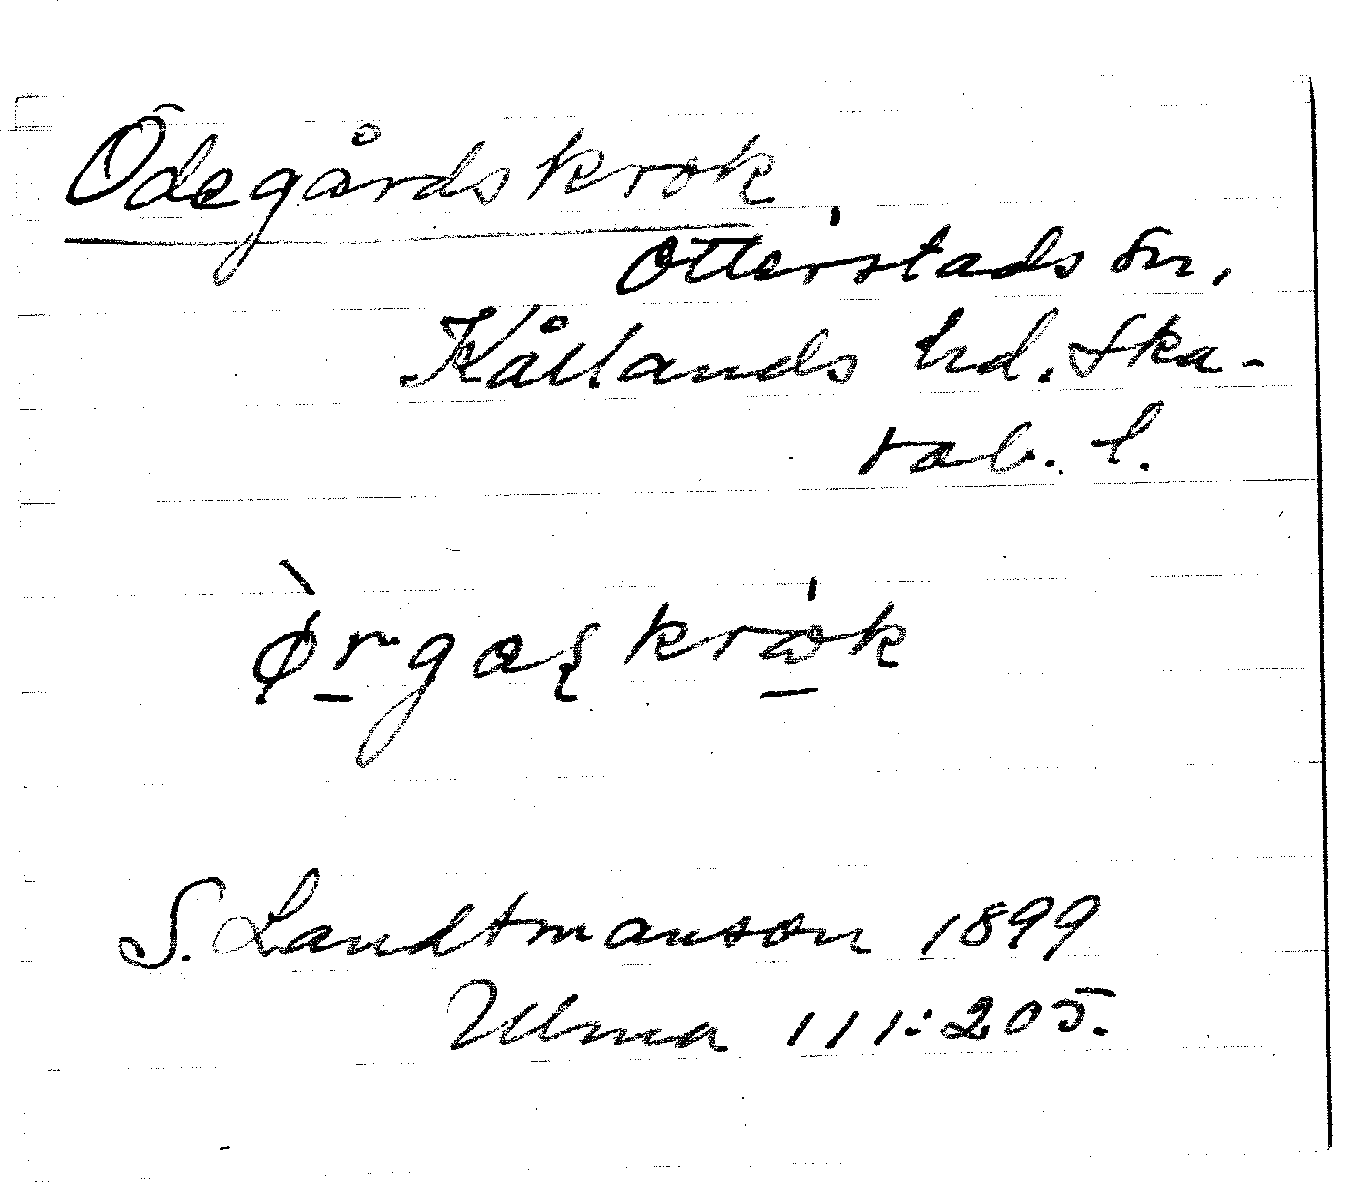 Ödegårdskrok
Otterstads sn,
Kållands hd. Ska-
rab. l.
ø̀r̲gaʂkrɷ̲́k
S. Landtmanson 1899
Ulma 111:205.